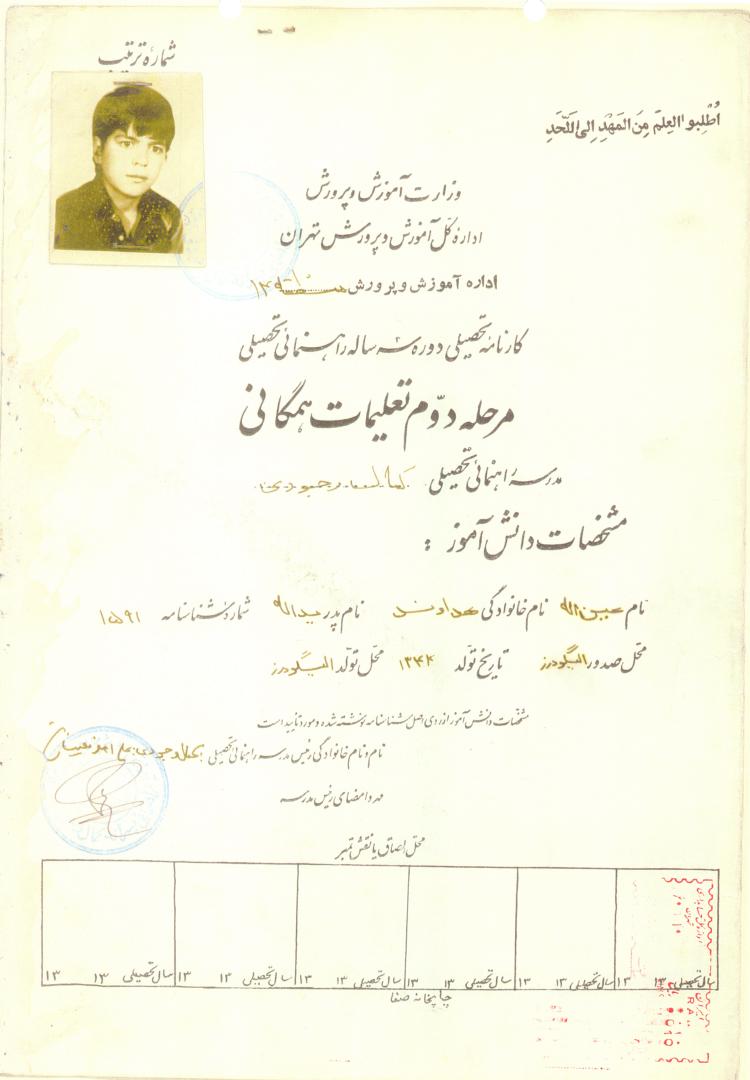 شمارهٔ ترتیب
اُطْلِبوا العِلمَ مِنَ المَهْدِ اِلی اللَّحَدِ
وزارت آموزش و پرورش
ادارهٔ کل آموزش و پرورش تهران
اداره آموزش و پرورش ۱۴
کارنامهٔ تحصیلی دورهٔ سه ساله راهنمائی تحصیلی
مرحله دوّم تعلیمات همگانی
مدرسه راهنمائی تحصیلی
مشخصات دانش آموز :
نام عین‌اله نام خانوادگی نام پدر یداله شمارهٔ شناسنامه ۱۵۹۱
محل صدور الیگودرز تاریخ تولد ۱۳۴۴ محل تولد الیگودرز
مشخصات دانش آموز از روی اصل شناسنامه نوشته شده و مورد تایید است
نام و نام خانوادگی رئیس مدرسه راهنمائی تحصیلی
مهر و امضای رئیس مدرسه
محل الصاق یا نقش تمبر
سال تحصیلی ۱۳ ۱۳ سال تحصیلی ۱۳ ۱۳ سال تحصیلی ۱۳ ۱۳ سال تحصیلی ۱۳ ۱۳ سال تحصیلی ۱۳ ۱۳ سال تحصیلی ۱۳ ۱۳
چاپخانه صفا